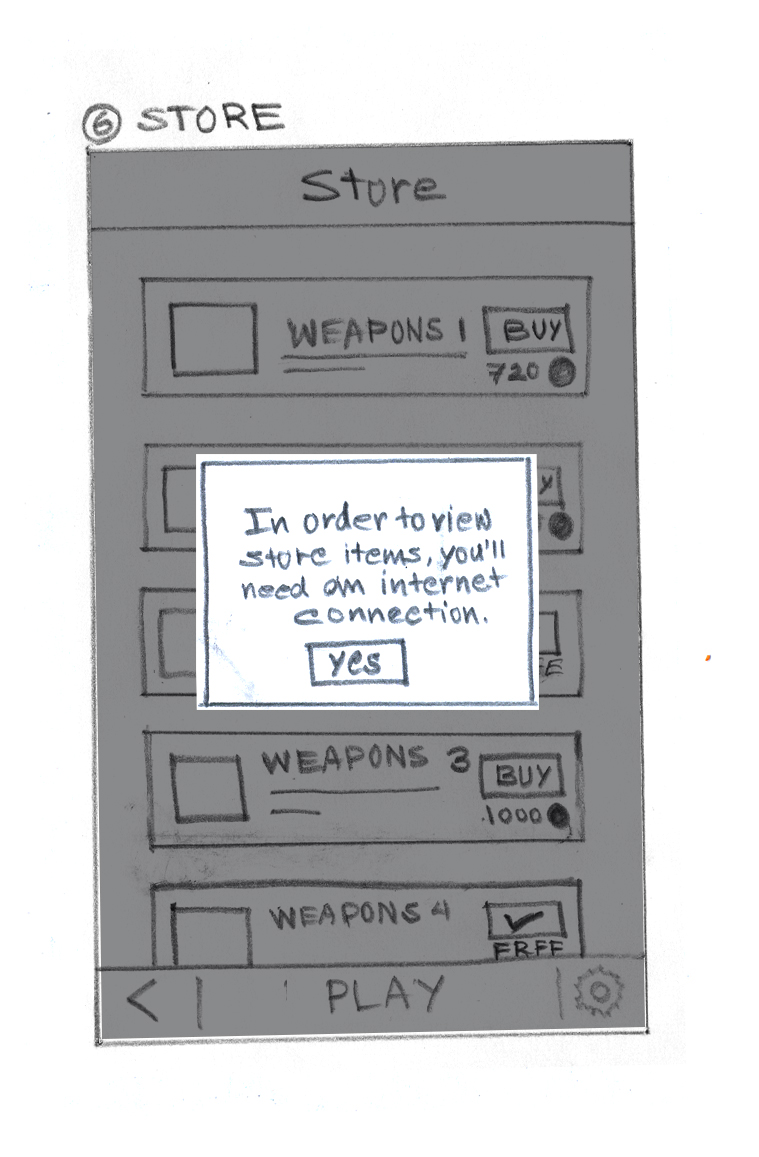 6 STORE
Store
WEAPONS 1
BUY
720
Y
In order to view
store items, you'll
need an internet
connection.
yes
EE
WEAPONS 3
BUY
1000
WEAPONS 4
FREE
< PLAY